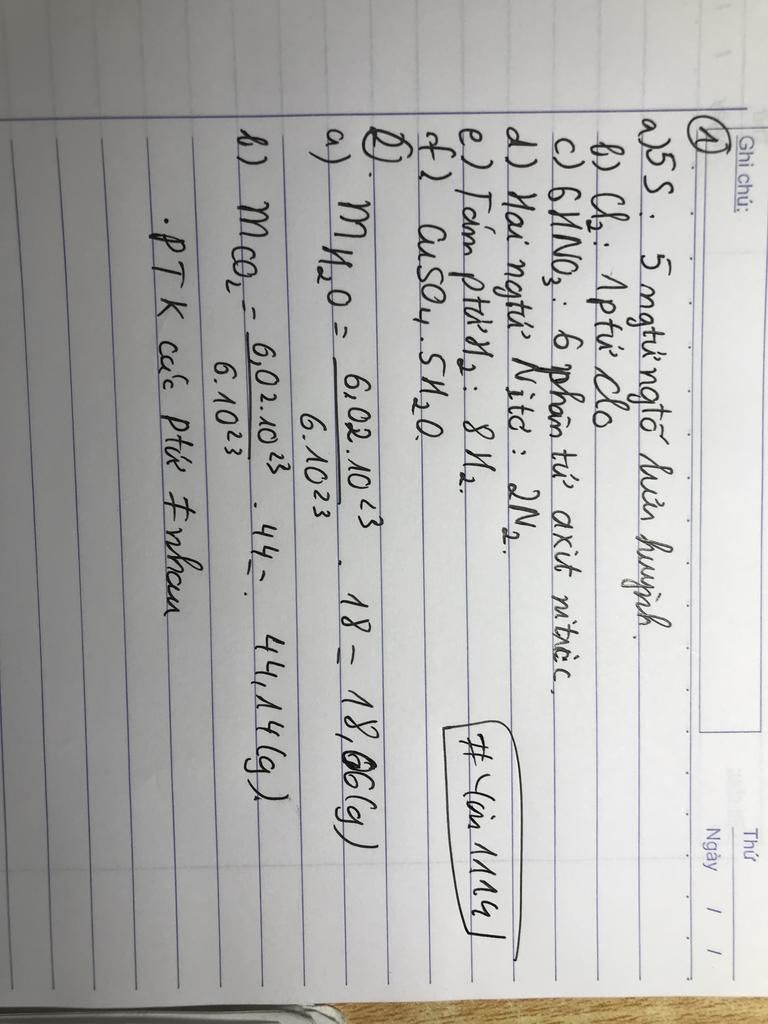 Ghi chú:
Thứ
Ngày / /
①
a) 5S: 5 ngtử ngtố lưu huỳnh.
b) Cl₂: 1 ptử clo
c) 6HNO₃: 6 phân tử axit nitric.
d) Hai ngtử Nitơ: 2N₂.
e) Tám ptử H₂: 8H₂.
f) CuSO₄.5H₂O.
#Yin1114
②
a) m H₂O = 6,02.10²³ / 6.10²³ . 18 = 18,06(g)
b) m CO₂ = 6,02.10²³ / 6.10²³ . 44 = 44,14(g)
. PTK các ptử ≠ nhau